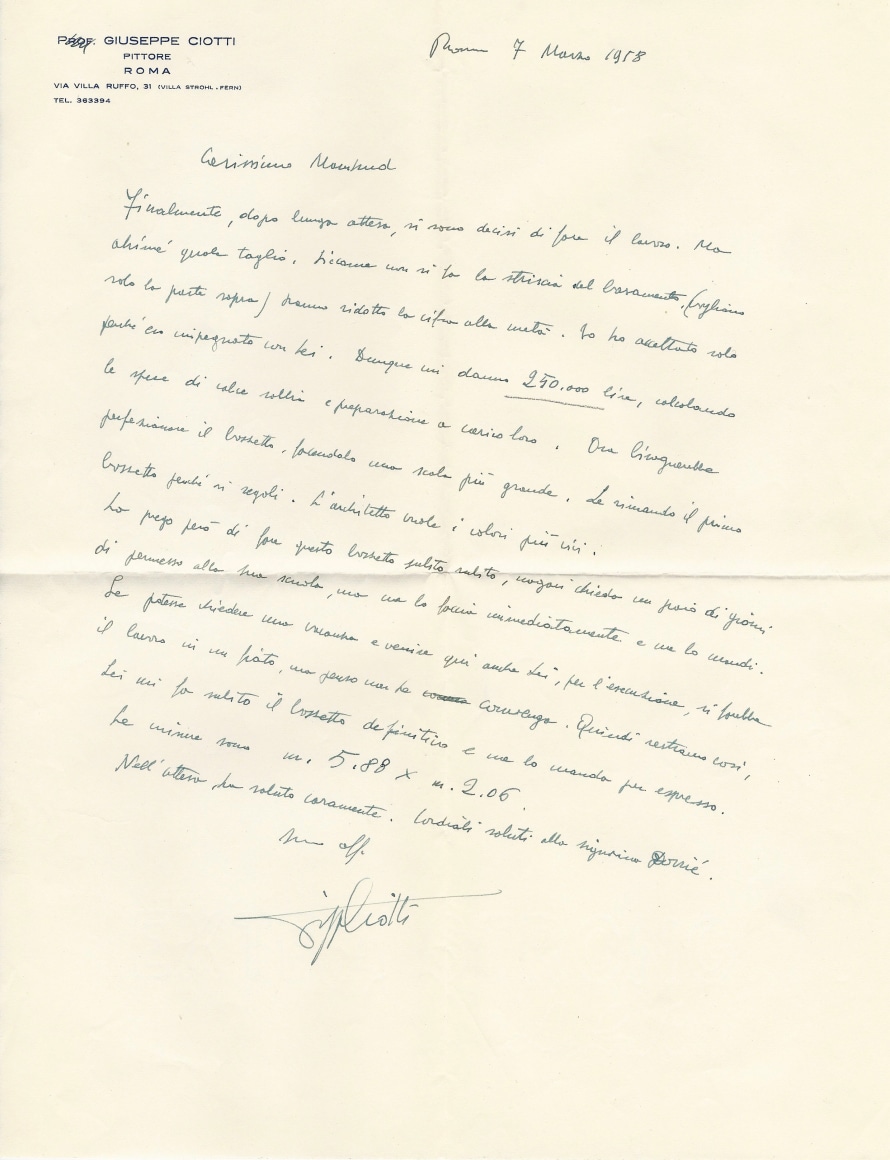 PROF. GIUSEPPE CIOTTI
PITTORE
ROMA
VIA VILLA RUFFO, 31 (VILLA STROHL-FERN)
TEL. 363394
Roma 7 Marzo 1958
Carissimo
Finalmente, dopo lunga attesa, si sono decisi di fare il lavoro. Ma
ahimé quale taglio. Siccome non si fa la striscia del basamento, (vogliono
solo la parte sopra) hanno ridotto la cifra alla metà. Io ho accettato solo
perché ero impegnato con Lei. Dunque mi danno 250.000 lire, calcolando
le spese di calce sabbia e preparazione a carico loro. Ora bisognerebbe
perfezionare il bozzetto, facendolo una scala più grande. Le rimando il primo
bozzetto perché si regoli. L'architetto vuole i colori più vivi.
La prego però di fare questo bozzetto subito subito, magari chieda un paio di giorni
di permesso alla sua scuola, ma me lo faccia immediatamente e me lo mandi.
Se potesse chiedere una vacanza e venire qui anche Lei, per l'esecuzione, si farebbe
il lavoro in un fiato, ma penso non le convenga. Quindi restiamo così,
Lei mi fa subito il bozzetto definitivo e me lo manda per espresso.
Le misure sono m. 5.88 x m. 2.06.
Nell'attesa, la saluto caramente. Cordiali saluti alla signorina
Suo aff.
Gius Ciotti